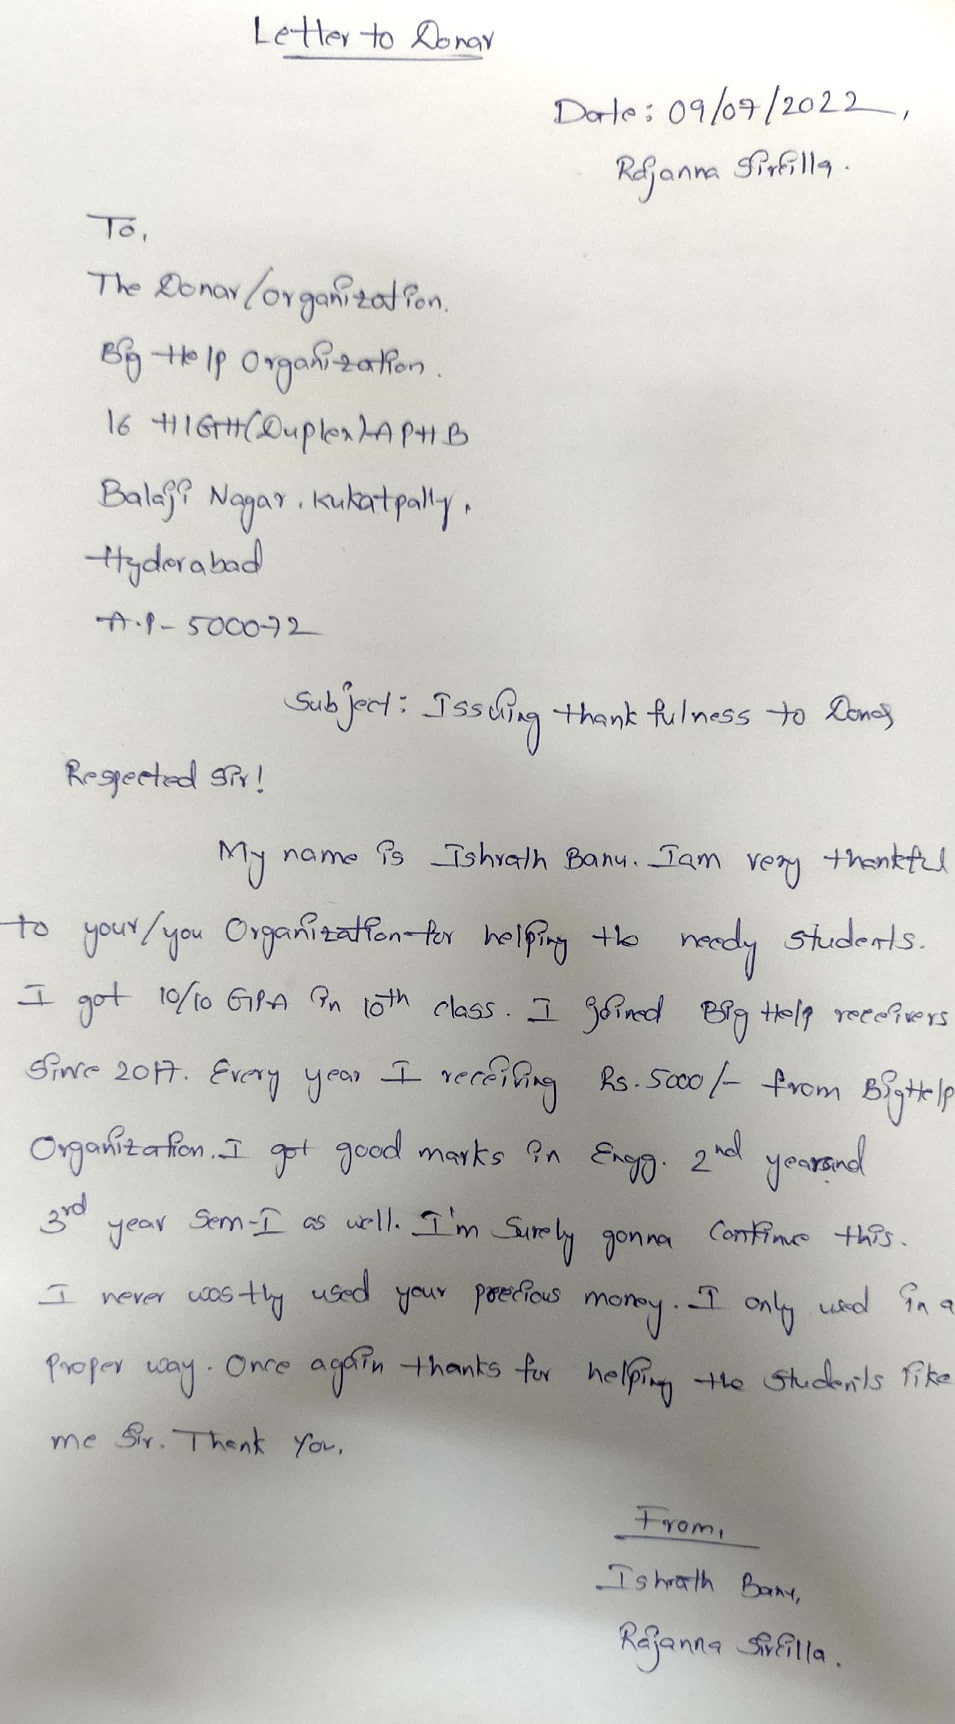 Letter to Donar
Date: 09/07/2022,
Rajanna Sircilla.
To,
The Donar/organization.
Big Help Organization.
16 HIGH(Duplex)-APHB
Balaji Nagar, Kukatpally,
Hyderabad
A.P- 500072
Subject: Issuing thankfulness to Donar
Respected Sir!
My name is Ishrath Banu. Iam very thankful
to your/you Organization for helping the needy students.
I got 10/10 GPA in 10th class. I joined Big Help receivers
since 2017. Every year I receiving Rs.5000/- from BigHelp
Organization. I got good marks in Engg. 2nd year and
3rd year Sem-I as well. I'm Surely gonna Continue this.
I never wastly used your precious money. I only used in a
Proper way. Once again thanks for helping the students like
me Sir. Thank You.
From,
Ishrath Banu,
Rajanna Sircilla.